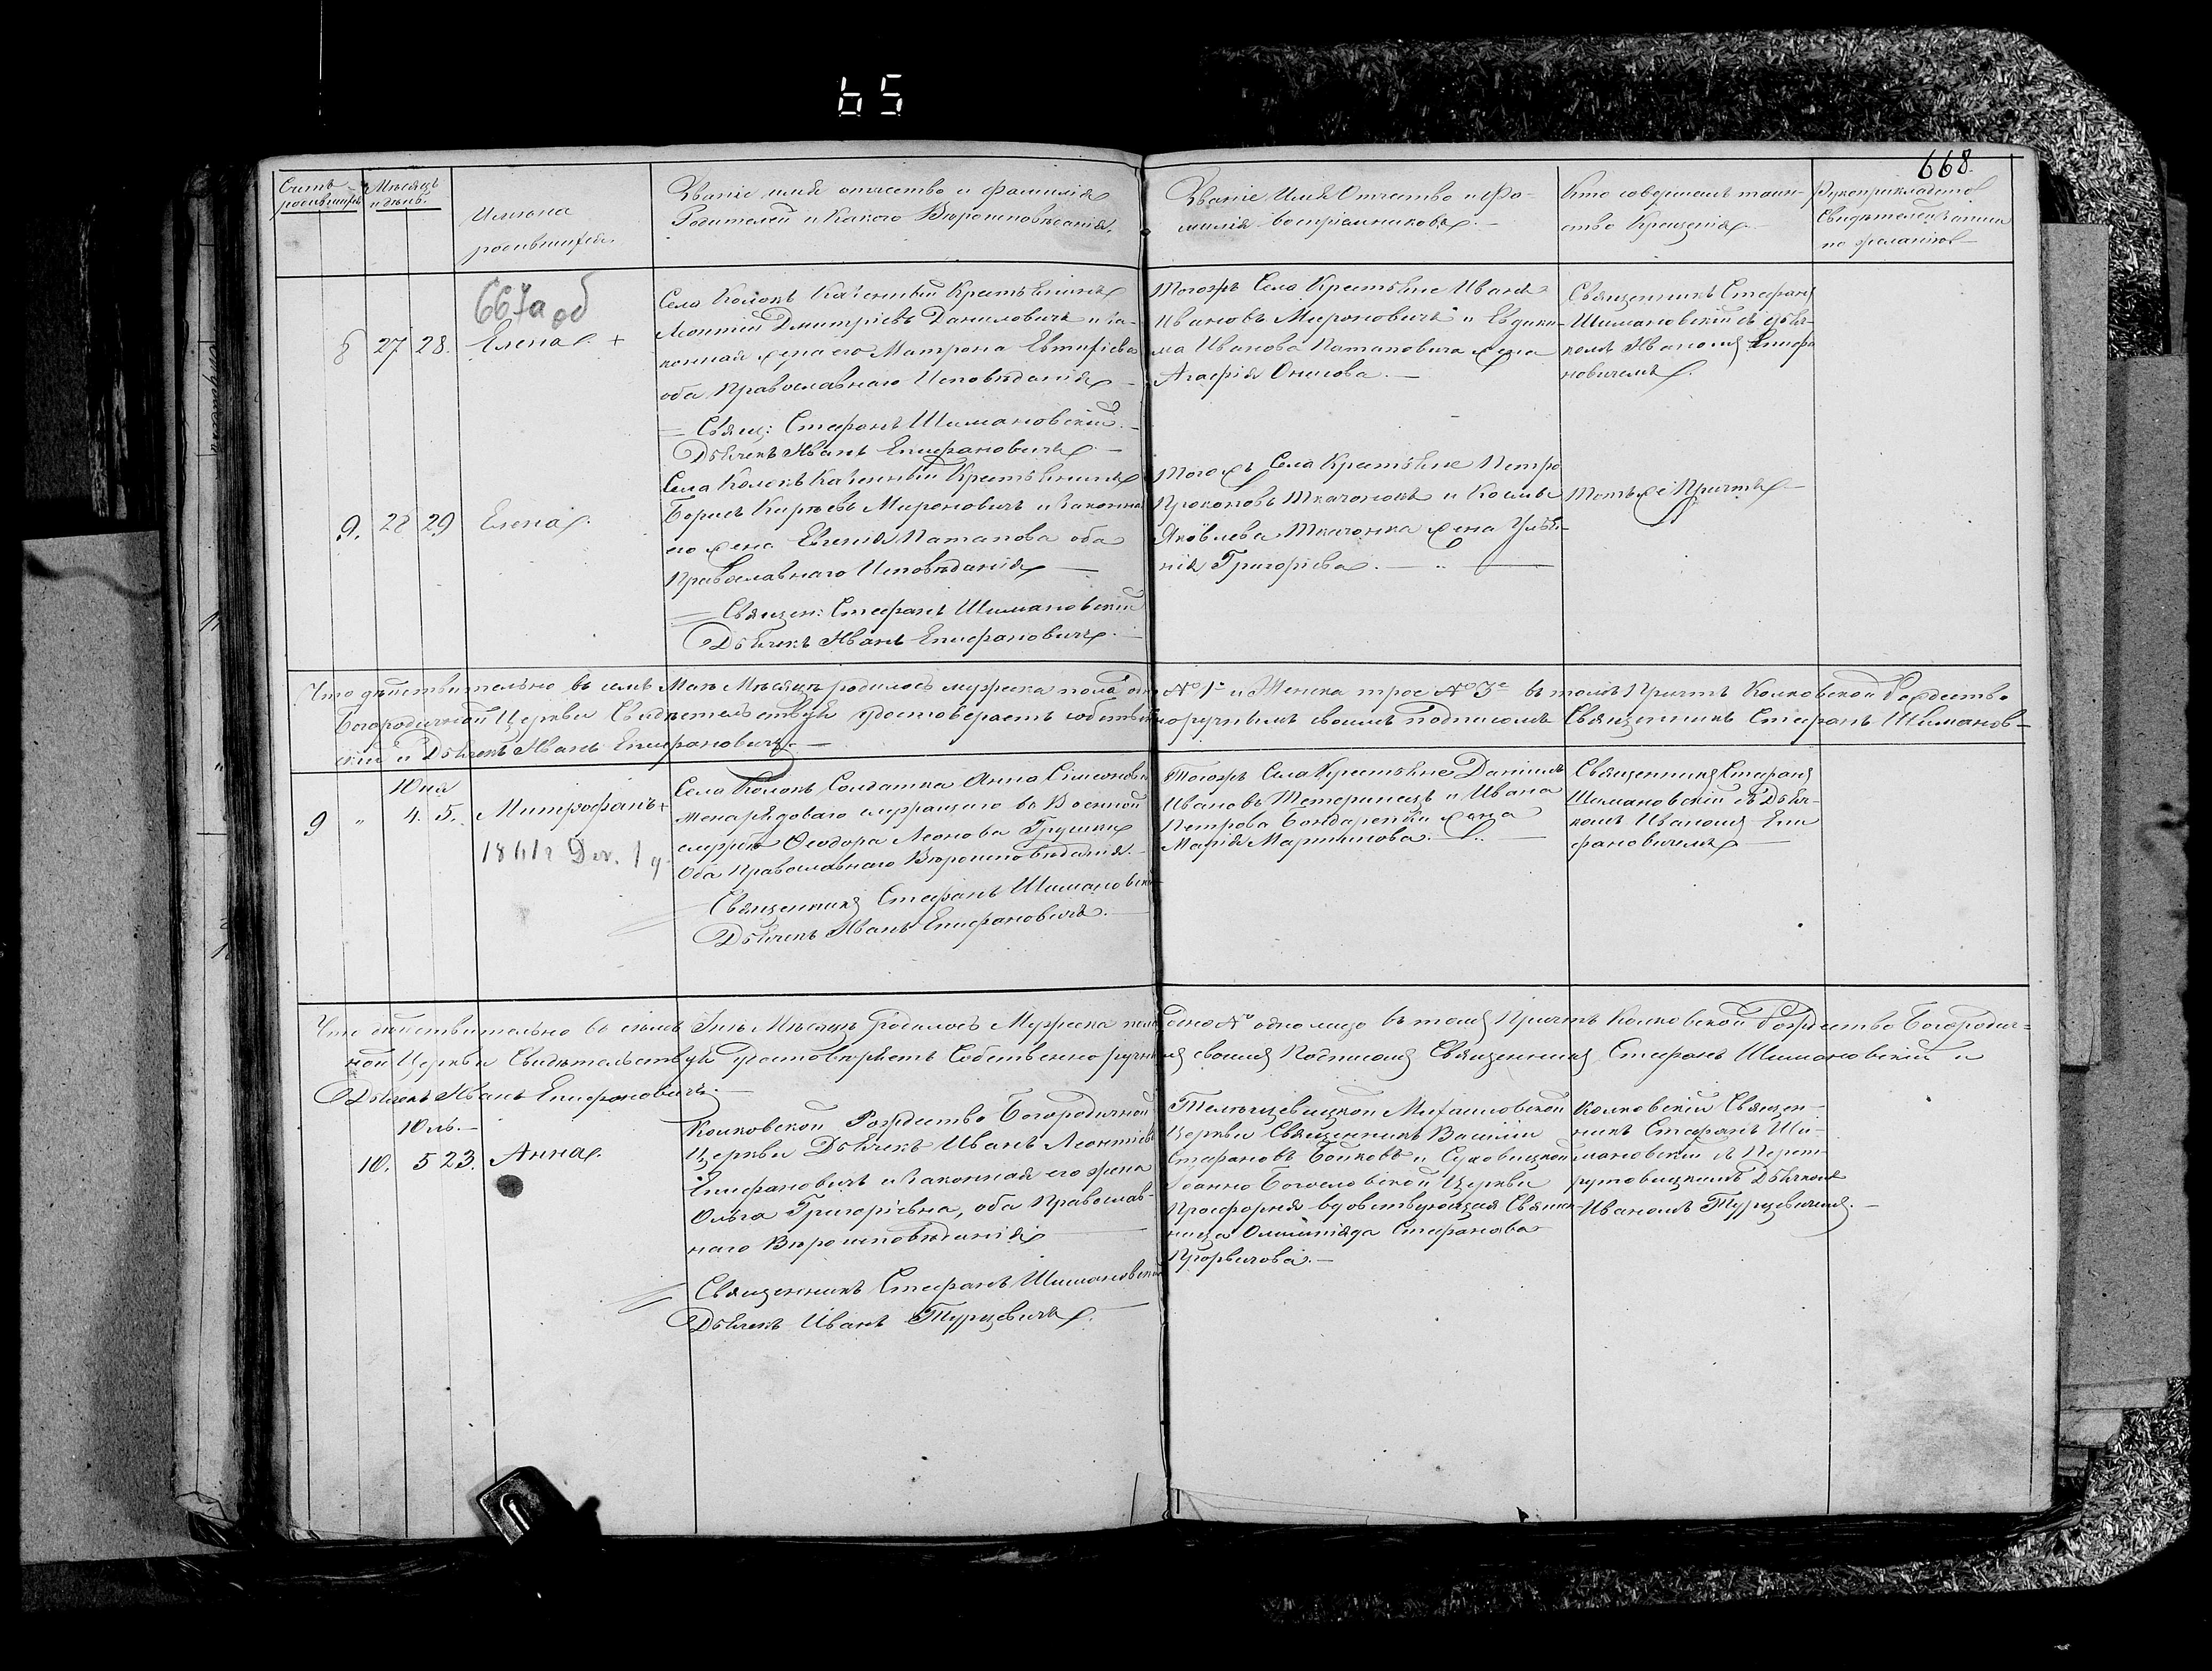 65
668.
Счетъ родившихъ
Мѣсяцъ и день.
Имена родившихся.
Званіе имя отчество и фамилія
Родителей и Какого Вѣроисповѣданія.
Званіе Имя Отчество и Фа-
милія воспріемниковъ.—
Кто совершалъ таин-
ство Крещенія.
Рукоприкладство
Свидѣтелей записи
по желанію—
667а об
8 27 28. Елена. +
Села Колокъ Казенный Крестьянинъ
Леонтій Дмитріевъ Даниловичъ и за-
конная жена его Матрона Евтихіева
оба Православнаго Исповѣданія —
= Свящ: Стефанъ Шимановскій.—
Дьячекъ Иванъ Епифановичъ.—
Тогожъ Села Крестьяне Иванъ
Ивановъ Мироновичъ и Евдоки-
ма Иванова Патаповича жена
Агафія Онисова.—
Священникъ Стефанъ
Шимановскій съ дьяч-
комъ Иваномъ Епифа
новичемъ.
9. 28 29 Елена.
Села Колокъ Казенный Крестьянинъ
Борисъ Карповъ Мироновичъ и Законная
его жена Евгенія Патапова оба
Православнаго Исповѣданія —
= Священ: Стефанъ Шимановскій
Дьячекъ Иванъ Епифановичъ.—
Тогожъ Села Крестьяне Петро
Прокоповъ Ткачонокъ и Косьмы
Яковлева Ткачонка жена Улья-
нія Григоріева.—
Тотъже Причтъ.—
Что дѣйствительно въ семъ Маѣ Мѣсяцѣ родилось мужеска пола № 1е и Женска трое № 3е въ томъ Причтъ Колковской Рождество
Богородичной Церкви Свидѣтельствуя удостовѣряетъ собственноручнымъ своимъ подписомъ Священникъ Стефанъ Шиманов-
скій и Дьячекъ Иванъ Епифановичъ.—
9 " Юня 4. 5. Митрофанъ +
1861г Дек. 1 д
Села Колокъ Солдатка Анна Сімеонова
жена рядоваго служащаго въ Военной
службѣ Ѳеодора Леонова Грушки
Оба Православнаго Вѣроисповѣданія.—
Священникъ Стефанъ Шимановскій
Дьячекъ Иванъ Епифановичъ.—
Тогожъ Села Крестьяне Даніилъ
Ивановъ Тетеринецъ и Ивана
Петрова Бондаренки жена
Марія Мартинова.
Священникъ Стефанъ
Шимановскій съ Дьяч-
комъ Иваномъ Епи
фановичемъ —
Что дѣйствительно въ семъ Іюнѣ Мѣсяцѣ родилось Мужеска пола одно № одно лицо въ томъ Причтъ Колковской Рождество Богородич-
ной Церкви Свидѣтельствуя удостовѣряетъ Собственноручнымъ своимъ Подписомъ Священникъ Стефанъ Шимановскій и
Дьячекъ Иванъ Епифановичъ.—
Юль.—
10. 5 23. Анна.
Колковской Рождество Богородичной
Церкви Дьячекъ Иванъ Леонтіевъ
Епифановичъ и Законная его жена
Ольга Григоріевна, оба Православ-
наго Вѣроисповѣданія —
Священникъ Стефанъ Шимановскій
Дьячекъ Иванъ Турцевичъ.
Михаиловской
Церкви Священникъ Василій
Стефановъ Бойковъ и
Іоанно Богословской Церкви
Просфорня вдовствующая Священ-
ница Олимпіяда Стефанова
Колковскій Священ-
никъ Стефанъ Ши-
мановскій съ
Дьячкомъ
Иваномъ Турцевичемъ.—